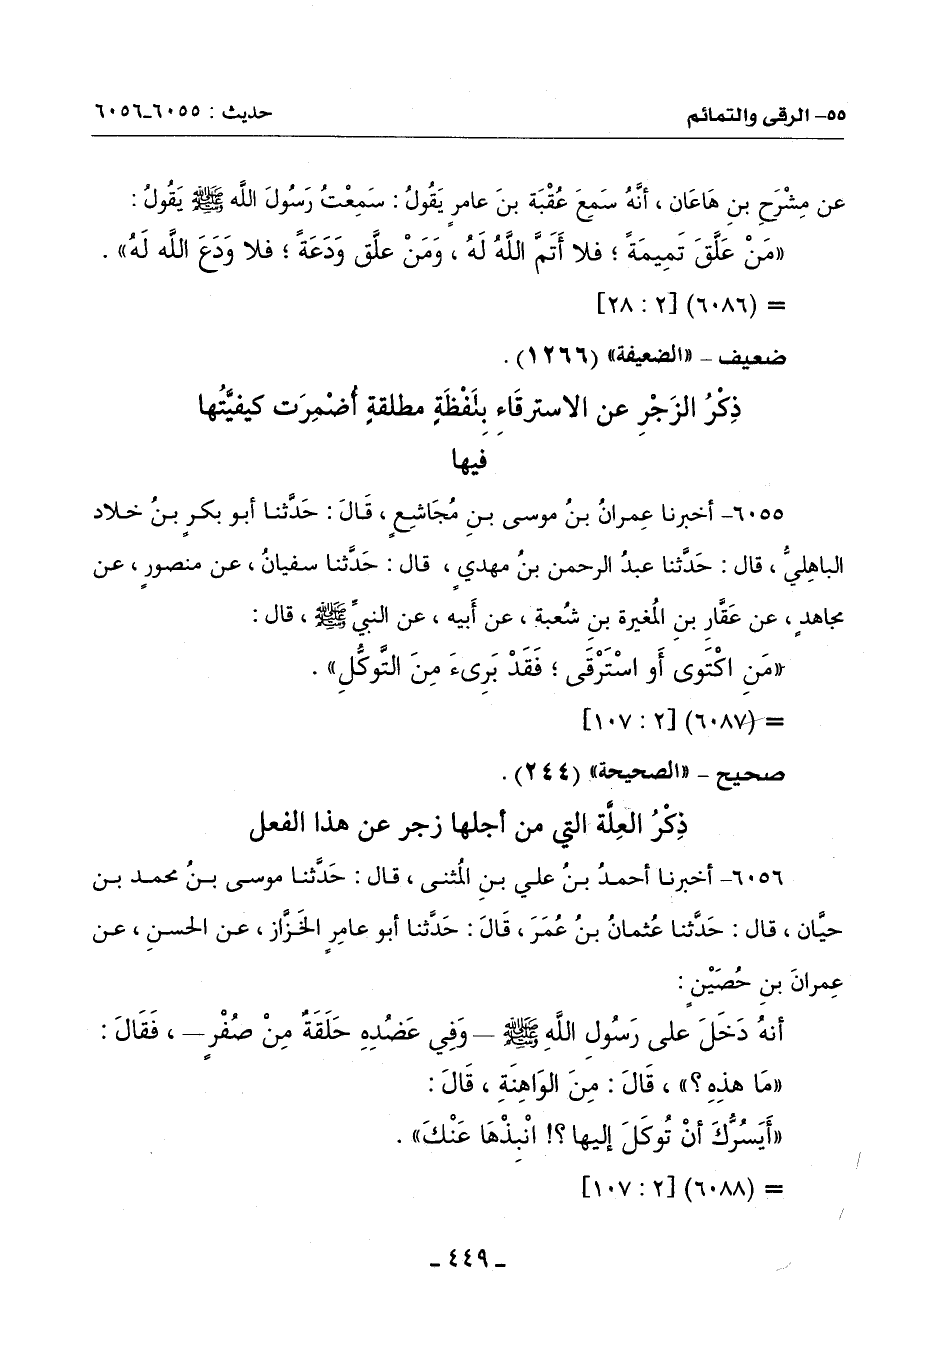 ٥٥- الرقى والتمائم حديث : ٦٠٥٥-٦٠٥٦
عن مِشْرَحِ بنِ هَاعَان ، أنَّهُ سَمِعَ عُقْبَة بنَ عامرٍ يَقُولُ : سَمِعْتُ رَسُولَ اللَّه ﷺ يَقُولُ :
«مَنْ عَلَّقَ تَمِيمَةً ؛ فلا أَتَمَّ اللَّهُ لَهُ ، وَمَنْ علَّق وَدَعَةً ؛ فلا وَدَعَ اللَّه لَهُ» .
= (٦٠٨٦) [٢ : ٢٨]
ضعيف - «الضعيفة» (١٢٦٦) .
ذِكْرُ الزَجْرِ عن الاسترقَاءِ بِلَفْظَةٍ مطلقةٍ أُضْمِرَت كيفيَّتُها
فيها
٦٠٥٥- أخبرنا عِمرانُ بنُ موسى بنِ مُجَاشعٍ ، قَالَ : حَدَّثنا أبو بكرٍ بنُ خلاد
الباهِليُّ ، قال : حَدَّثنا عبدُ الرحمن بنُ مهدي ، قال : حَدَّثنا سفيانُ ، عن منصورٍ ، عن
مجاهدٍ ، عن عَقَّارِ بنِ المُغيرة بنِ شُعبة ، عن أَبيه ، عن النبيِّ ﷺ ، قال :
«مَنِ اكْتَوى أَو اسْتَرْقَى ؛ فَقَدْ بَرِىءَ مِنَ التَّوكُّلِ» .
= (٦٠٨٧) [٢ : ١٠٧]
صحيح - «الصحيحة» (٢٤٤) .
ذِكْرُ العِلَّة التي من أجلها زجر عن هذا الفعل
٦٠٥٦- أخبرنا أحمدُ بنُ علي بنِ المُثنى ، قال : حَدَّثنا موسى بنُ محمد بن
حيَّان ، قال : حَدَّثنا عُثمانُ بنُ عُمَرَ ، قَالَ : حَدَّثنا أبو عامرٍ الخَزَّاز ، عن الحسنِ ، عن
عِمرانَ بنِ حُصَيْنٍ :
أنهُ دَخَلَ على رَسُولِ اللَّهِ ﷺ - وَفِي عَضُدِهِ حَلَقَةٌ مِنْ صُفْرٍ - ، فَقَالَ :
«مَا هذِهِ ؟» ، قَالَ : مِنَ الوَاهِنَةِ ، قَالَ :
«أَيَسُرُّكَ أنْ تُوكَلَ إليها ؟! انْبِذْهَا عَنْكَ» .
= (٦٠٨٨) [٢ : ١٠٧]
- ٤٤٩ -